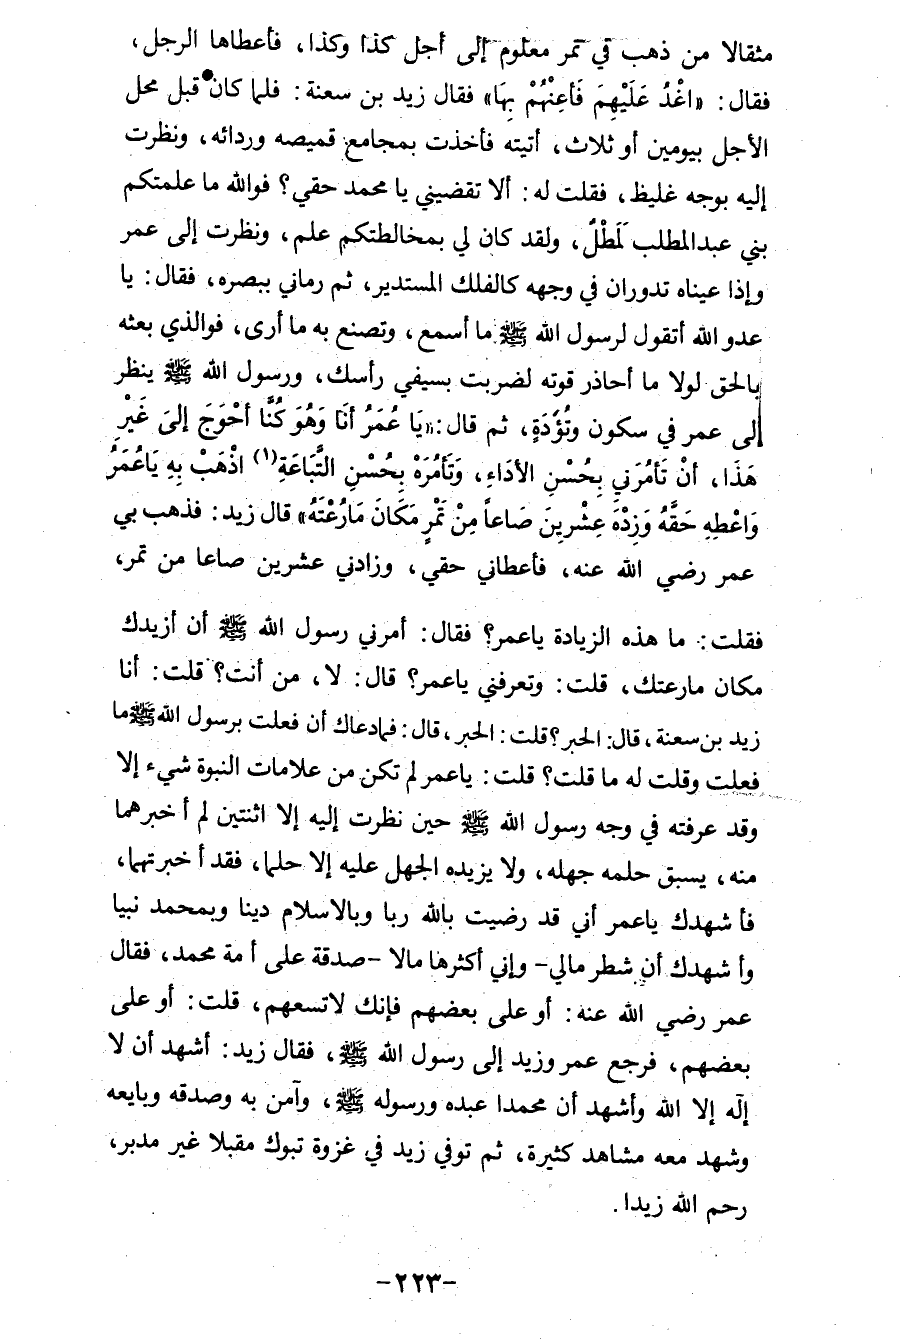 مثقالا من ذهب في تمر معلوم إلى أجل كذا وكذا، فأعطاها الرجل،
فقال: «اغْدُ عَلَيْهِمَ فَأَعِنْهُمْ بِهَا» فقال زيد بن سعنة: فلما كان قبل محل
الأجل بيومين أو ثلاث، أتيته فأخذت بمجامع قميصه وردائه، ونظرت
إليه بوجه غليظ، فقلت له: ألا تقضيني يا محمد حقي؟ فوالله ما علمتكم
بني عبدالمطلب لَمطْلٌ، ولقد كان لي بمخالطتكم علم، ونظرت إلى عمر
وإذا عيناه تدوران في وجهه كالفلك المستدير، ثم رماني ببصره، فقال: يا
عدو الله أتقول لرسول الله ﷺ ما أسمع، وتصنع به ما أرى، فوالذي بعثه
بالحق لولا ما أحاذر قوته لضربت بسيفي رأسك، ورسول الله ﷺ ينظر
إلى عمر في سكون وتُؤَدَةٍ، ثم قال: «يَا عُمَرُ أنَا وَهُوَ كُنَّا أحْوَجَ إلىَ غَيْرِ
هَذَا، أنْ تَأمُرَني بِحُسْنِ الأدَاءِ، وَتَأمُرَهْ بِحُسْنِ التَّبَاعَةِ(١) اذْهَبْ بِهِ يَاعُمَرُ
وَاعْطِهِ حَقَّهُ وَزِدْهُ عِشْرِينَ صَاعاً مِنْ تَمْرٍ مَكَانَ مَارُعْتَهُ» قال زيد: فذهب بي
عمر رضي الله عنه، فأعطاني حقي، وزادني عشرين صاعا من تمر،
فقلت: ما هذه الزيادة ياعمر؟ فقال: أمرني رسول الله ﷺ أن أزيدك
مكان مارعتك، قلت: وتعرفني ياعمر؟ قال: لا، من أنت؟ قلت: أنا
زيد بن سعنة، قال: الحبر؟ قلت: الحبر، قال: فمادعاك أن فعلت برسول الله ﷺ ما
فعلت وقلت له ما قلت؟ قلت: ياعمر لم تكن من علامات النبوة شيء إلا
وقد عرفته في وجه رسول الله ﷺ حين نظرت إليه إلا اثنتين لم أخبرهما
منه، يسبق حلمه جهله، ولا يزيده الجهل عليه إلا حلما، فقد أخبرتهما،
فأشهدك ياعمر أني قد رضيت بالله ربا وبالاسلام دينا وبمحمد نبيا
وأشهدك أن شطر مالي- وإني أكثرها مالا -صدقة على أمة محمد، فقال
عمر رضي الله عنه: أو على بعضهم فإنك لاتسعهم، قلت: أو على
بعضهم، فرجع عمر وزيد إلى رسول الله ﷺ، فقال زيد: أشهد أن لا
إله إلا الله وأشهد أن محمدا عبده ورسوله ﷺ، وآمن به وصدقه وبايعه
وشهد معه مشاهد كثيرة، ثم توفي زيد في غزوة تبوك مقبلا غير مدبر،
رحم الله زيدا.
-٢٢٣-